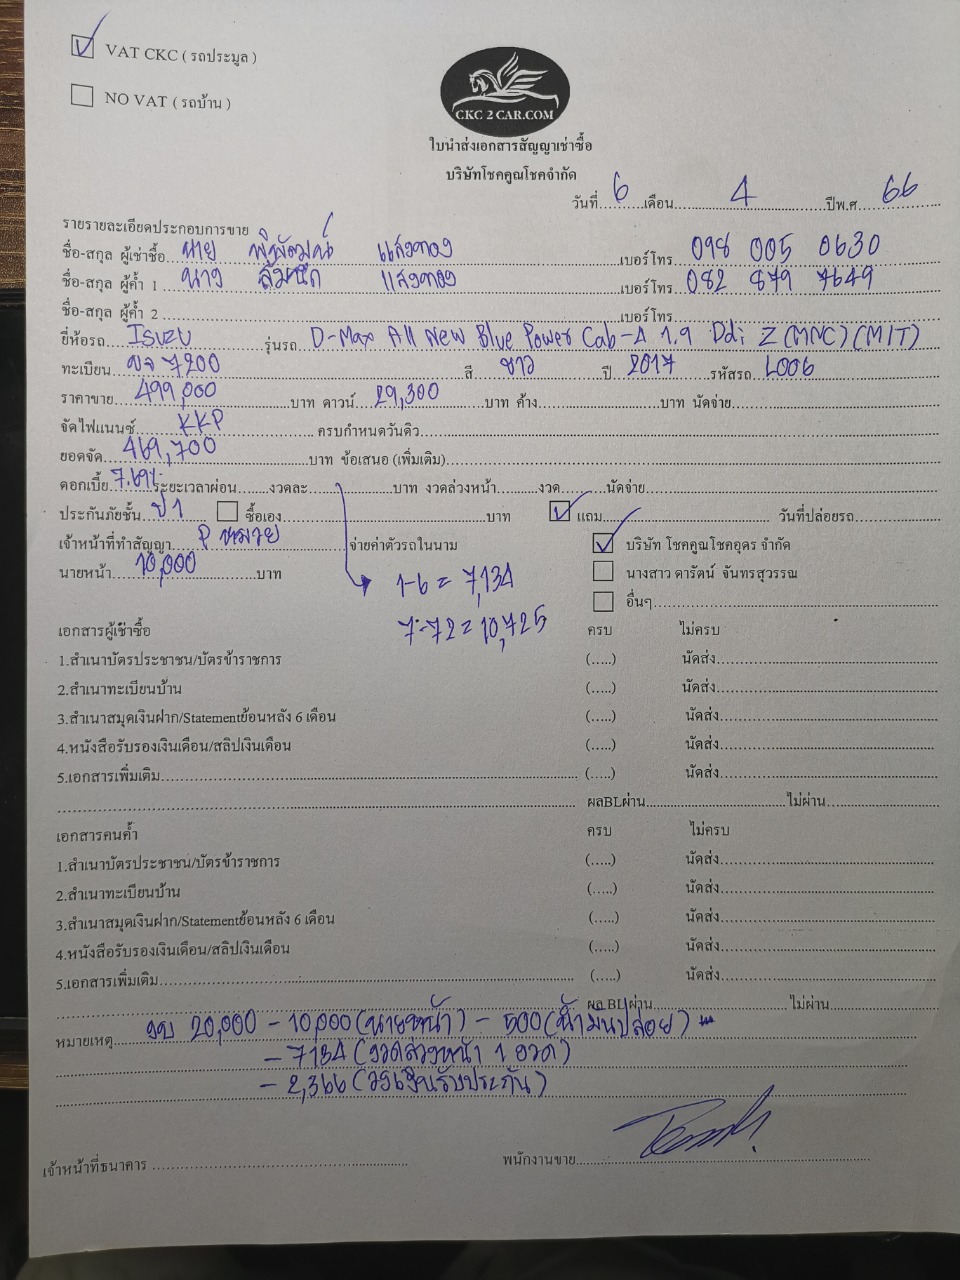 VAT CKC ( รถประมูล )
NO VAT ( รถบ้าน )
CKC 2 CAR.COM
ใบนำส่งเอกสารสัญญาเช่าซื้อ
บริษัทโชคคูณโชคจำกัด
วันที่ 6 เดือน 4 ปีพ.ศ 66
รายรายละเอียดประกอบการขาย
ชื่อ-สกุล ผู้เช่าซื้อ นาย พีพัฒน์ แสงทอง เบอร์โทร 098 005 0630
ชื่อ-สกุล ผู้ค้ำ 1 นาง สมนึก แสงทอง เบอร์โทร 082 879 7649
ชื่อ-สกุล ผู้ค้ำ 2 เบอร์โทร
ยี่ห้อรถ ISUZU รุ่นรถ D-Max All New Blue Power Cab-4 1.9 Ddi Z (MNC)(MIT)
ทะเบียน 7200 สี ขาว ปี 2017 รหัสรถ L006
ราคาขาย 499,000 บาท ดาวน์ 29,300 บาท ค้าง บาท นัดจ่าย
จัดไฟแนนซ์ KKP ครบกำหนดวันดิว
ยอดจัด 469,700 บาท ข้อเสนอ (เพิ่มเติม)
ดอกเบี้ย 7.69% ระยะเวลาผ่อน งวดละ บาท งวดล่วงหน้า งวด นัดจ่าย
ประกันภัยชั้น ป1 ซื้อเอง บาท แถม วันที่ปล่อยรถ
เจ้าหน้าที่ทำสัญญา P หมวย จ่ายค่าตัวรถในนาม บริษัท โชคคูณโชคอุดร จำกัด
นายหน้า 10,000 บาท 1-6 = 7,134 นางสาว ดารัตน์ จันทรสุวรรณ
อื่นๆ
7-72 = 10,725
เอกสารผู้เช่าซื้อ ครบ ไม่ครบ
1.สำเนาบัตรประชาชน/บัตรข้าราชการ (.....) นัดส่ง
2.สำเนาทะเบียนบ้าน (.....) นัดส่ง
3.สำเนาสมุดเงินฝาก/Statementย้อนหลัง 6 เดือน (.....) นัดส่ง
4.หนังสือรับรองเงินเดือน/สลิปเงินเดือน (.....) นัดส่ง
5.เอกสารเพิ่มเติม (.....) นัดส่ง
ผลBLผ่าน ไม่ผ่าน
เอกสารคนค้ำ ครบ ไม่ครบ
1.สำเนาบัตรประชาชน/บัตรข้าราชการ (.....) นัดส่ง
2.สำเนาทะเบียนบ้าน (.....) นัดส่ง
3.สำเนาสมุดเงินฝาก/Statementย้อนหลัง 6 เดือน (.....) นัดส่ง
4.หนังสือรับรองเงินเดือน/สลิปเงินเดือน (.....) นัดส่ง
5.เอกสารเพิ่มเติม (.....) นัดส่ง
ผล BLผ่าน ไม่ผ่าน
หมายเหตุ งบ 20,000 - 10,000 (นายหน้า) - 500 (น้ำมันปล่อย)
- 7134 (งวดล่วงหน้า 1 งวด)
- 2,366 (วงเงินรับประกัน)
เจ้าหน้าที่ธนาคาร พนักงานขาย